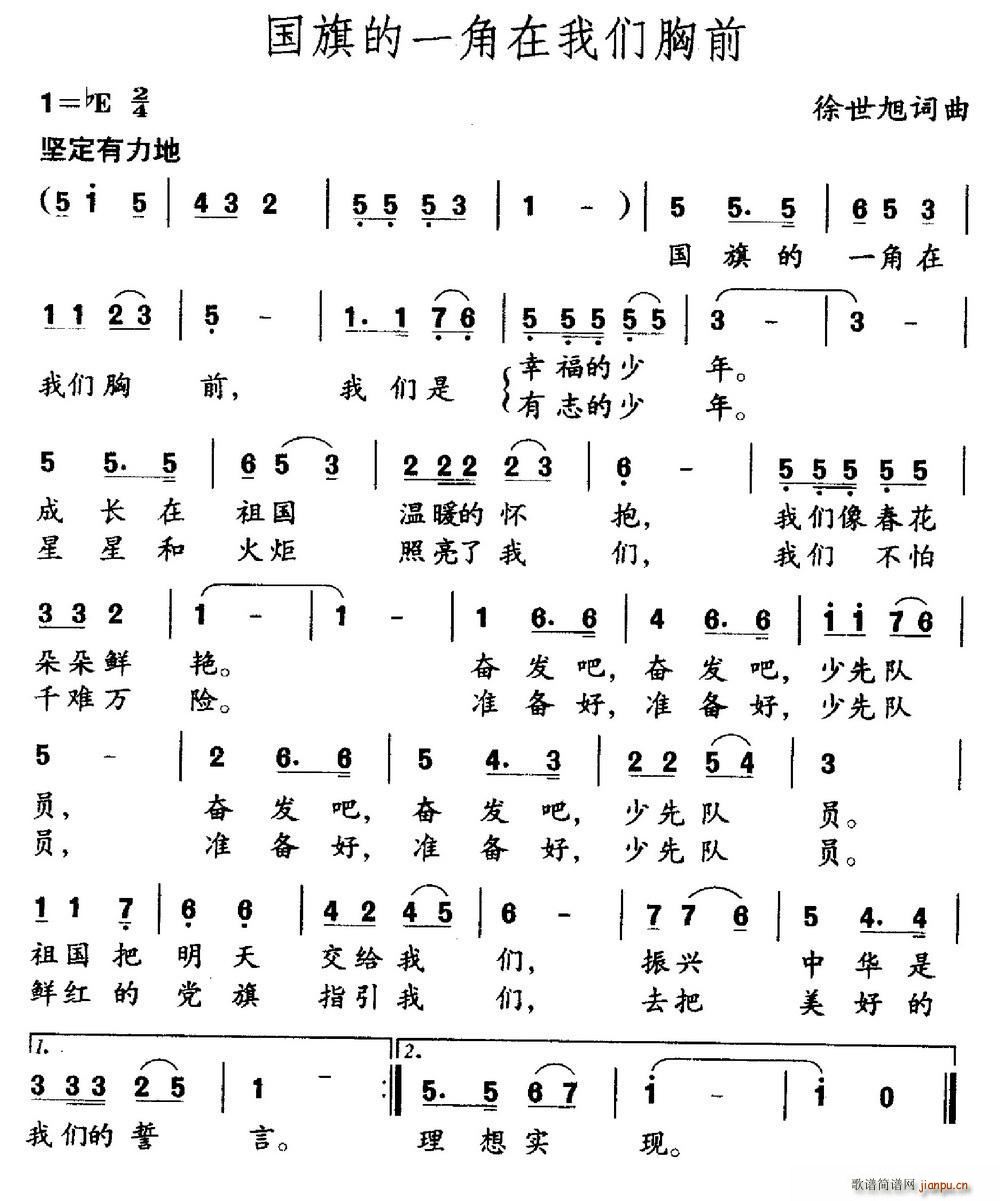 国旗的一角在我们胸前
1=♭E 2/4
徐世旭词曲
坚定有力地
(5 i 5 | 4 3 2 | 5 5 5 3 | 1 - ) | 5 5. 5 | 6 5 3 |
国 旗 的 一角在
1 1 2 3 | 5 - | 1. 1 7 6 | 5 5 5 5 5 | 3 - | 3 - |
我们胸 前, 我 们是 幸福的少 年。
有志的少 年。
5 5. 5 | 6 5 3 | 2 2 2 2 3 | 6 - | 5 5 5 5 5 |
成 长 在 祖国 温暖的怀 抱, 我们像春花
星 星 和 火炬 照亮了我 们, 我们 不怕
3 3 2 | 1 - | 1 - | 1 6. 6 | 4 6. 6 | i i 7 6 |
朵朵鲜 艳。 奋 发 吧, 奋 发 吧, 少先队
千难万 险。 准 备 好, 准 备 好, 少先队
5 - | 2 6. 6 | 5 4. 3 | 2 2 5 4 | 3 |
员, 奋 发 吧, 奋 发 吧, 少先队 员。
员, 准 备 好, 准 备 好, 少先队 员。
1 1 7 | 6 6 | 4 2 4 5 | 6 - | 7 7 6 | 5 4. 4 |
祖国把 明 天 交给我 们, 振兴 中 华 是
鲜红的 党 旗 指引我 们, 去把 美 好 的
1. 2.
3 3 3 2 5 | 1 - :| 5. 5 6 7 | i - | i 0 |
我们的誓 言。 理 想实 现。
歌谱简谱网
jianpu.cn